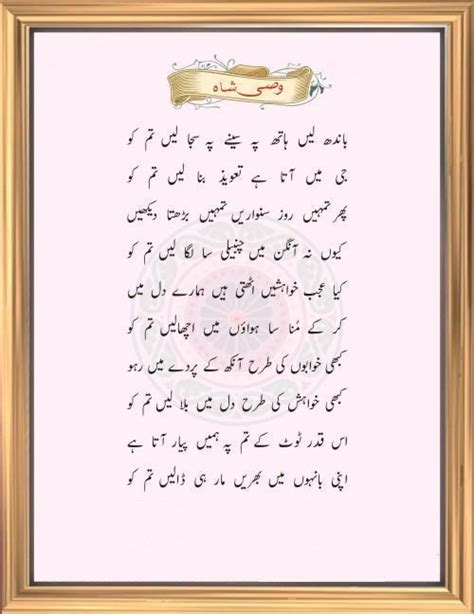 وصی شاہ
باندھ لیں ہاتھ پہ سینے پہ سجا لیں تم کو
جی میں آتا ہے تعویذ بنا لیں تم کو
پھر تمہیں روز سنواریں تمہیں بڑھتا دیکھیں
کیوں نہ آنگن میں چنبیلی سا لگا لیں تم کو
کیا عجب خواہشیں اٹھتی ہیں ہمارے دل میں
کر کے مُنا سا ہواؤں میں اچھالیں تم کو
کبھی خوابوں کی طرح آنکھ کے پردے میں رہو
کبھی خواہش کی طرح دل میں بلا لیں تم کو
اس قدر ٹوٹ کے تم پہ ہمیں پیار آتا ہے
اپنی بانہوں میں بھریں مار ہی ڈالیں تم کو